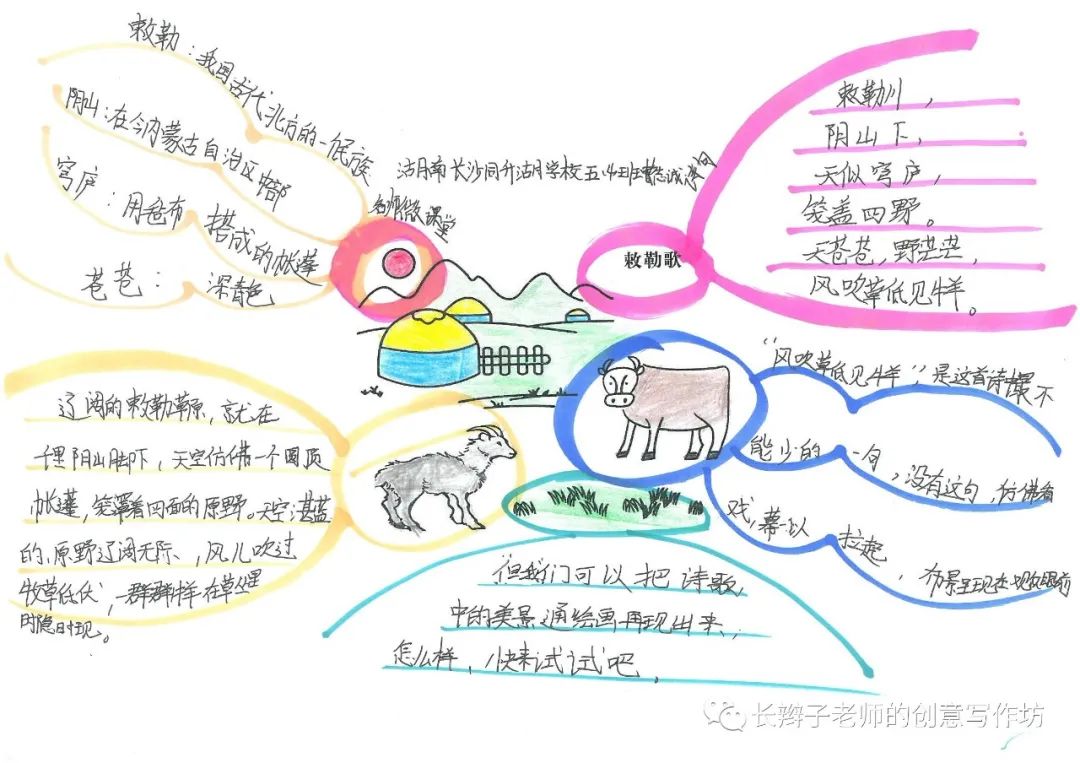 敕勒：我国古代北方的一个民族
阴山：在今内蒙古自治区中部
穹庐：用毡布搭成的帐篷
苍苍：深青色
名师微课堂
敕勒歌
敕勒川，
阴山下，
天似穹庐，
笼盖四野。
天苍苍，野茫茫，
风吹草低见牛羊。
辽阔的敕勒草原，就在
阴山脚下，天空仿佛一个圆顶
帐蓬，笼罩着四面的原野。天空湛蓝
的、原野辽阔无际、，风儿吹过
牧草低伏，一群群牛羊在草丛里
时隐时现。
“风吹草低见牛羊”，是这首诗最不
能少的一句，没有这句，仿佛看
戏，幕以拉起，布景呈现在眼前
但我们可以把诗歌
中的美景通绘画再现出来，
怎么样，快来试试吧。
长辫子老师的创意写作坊